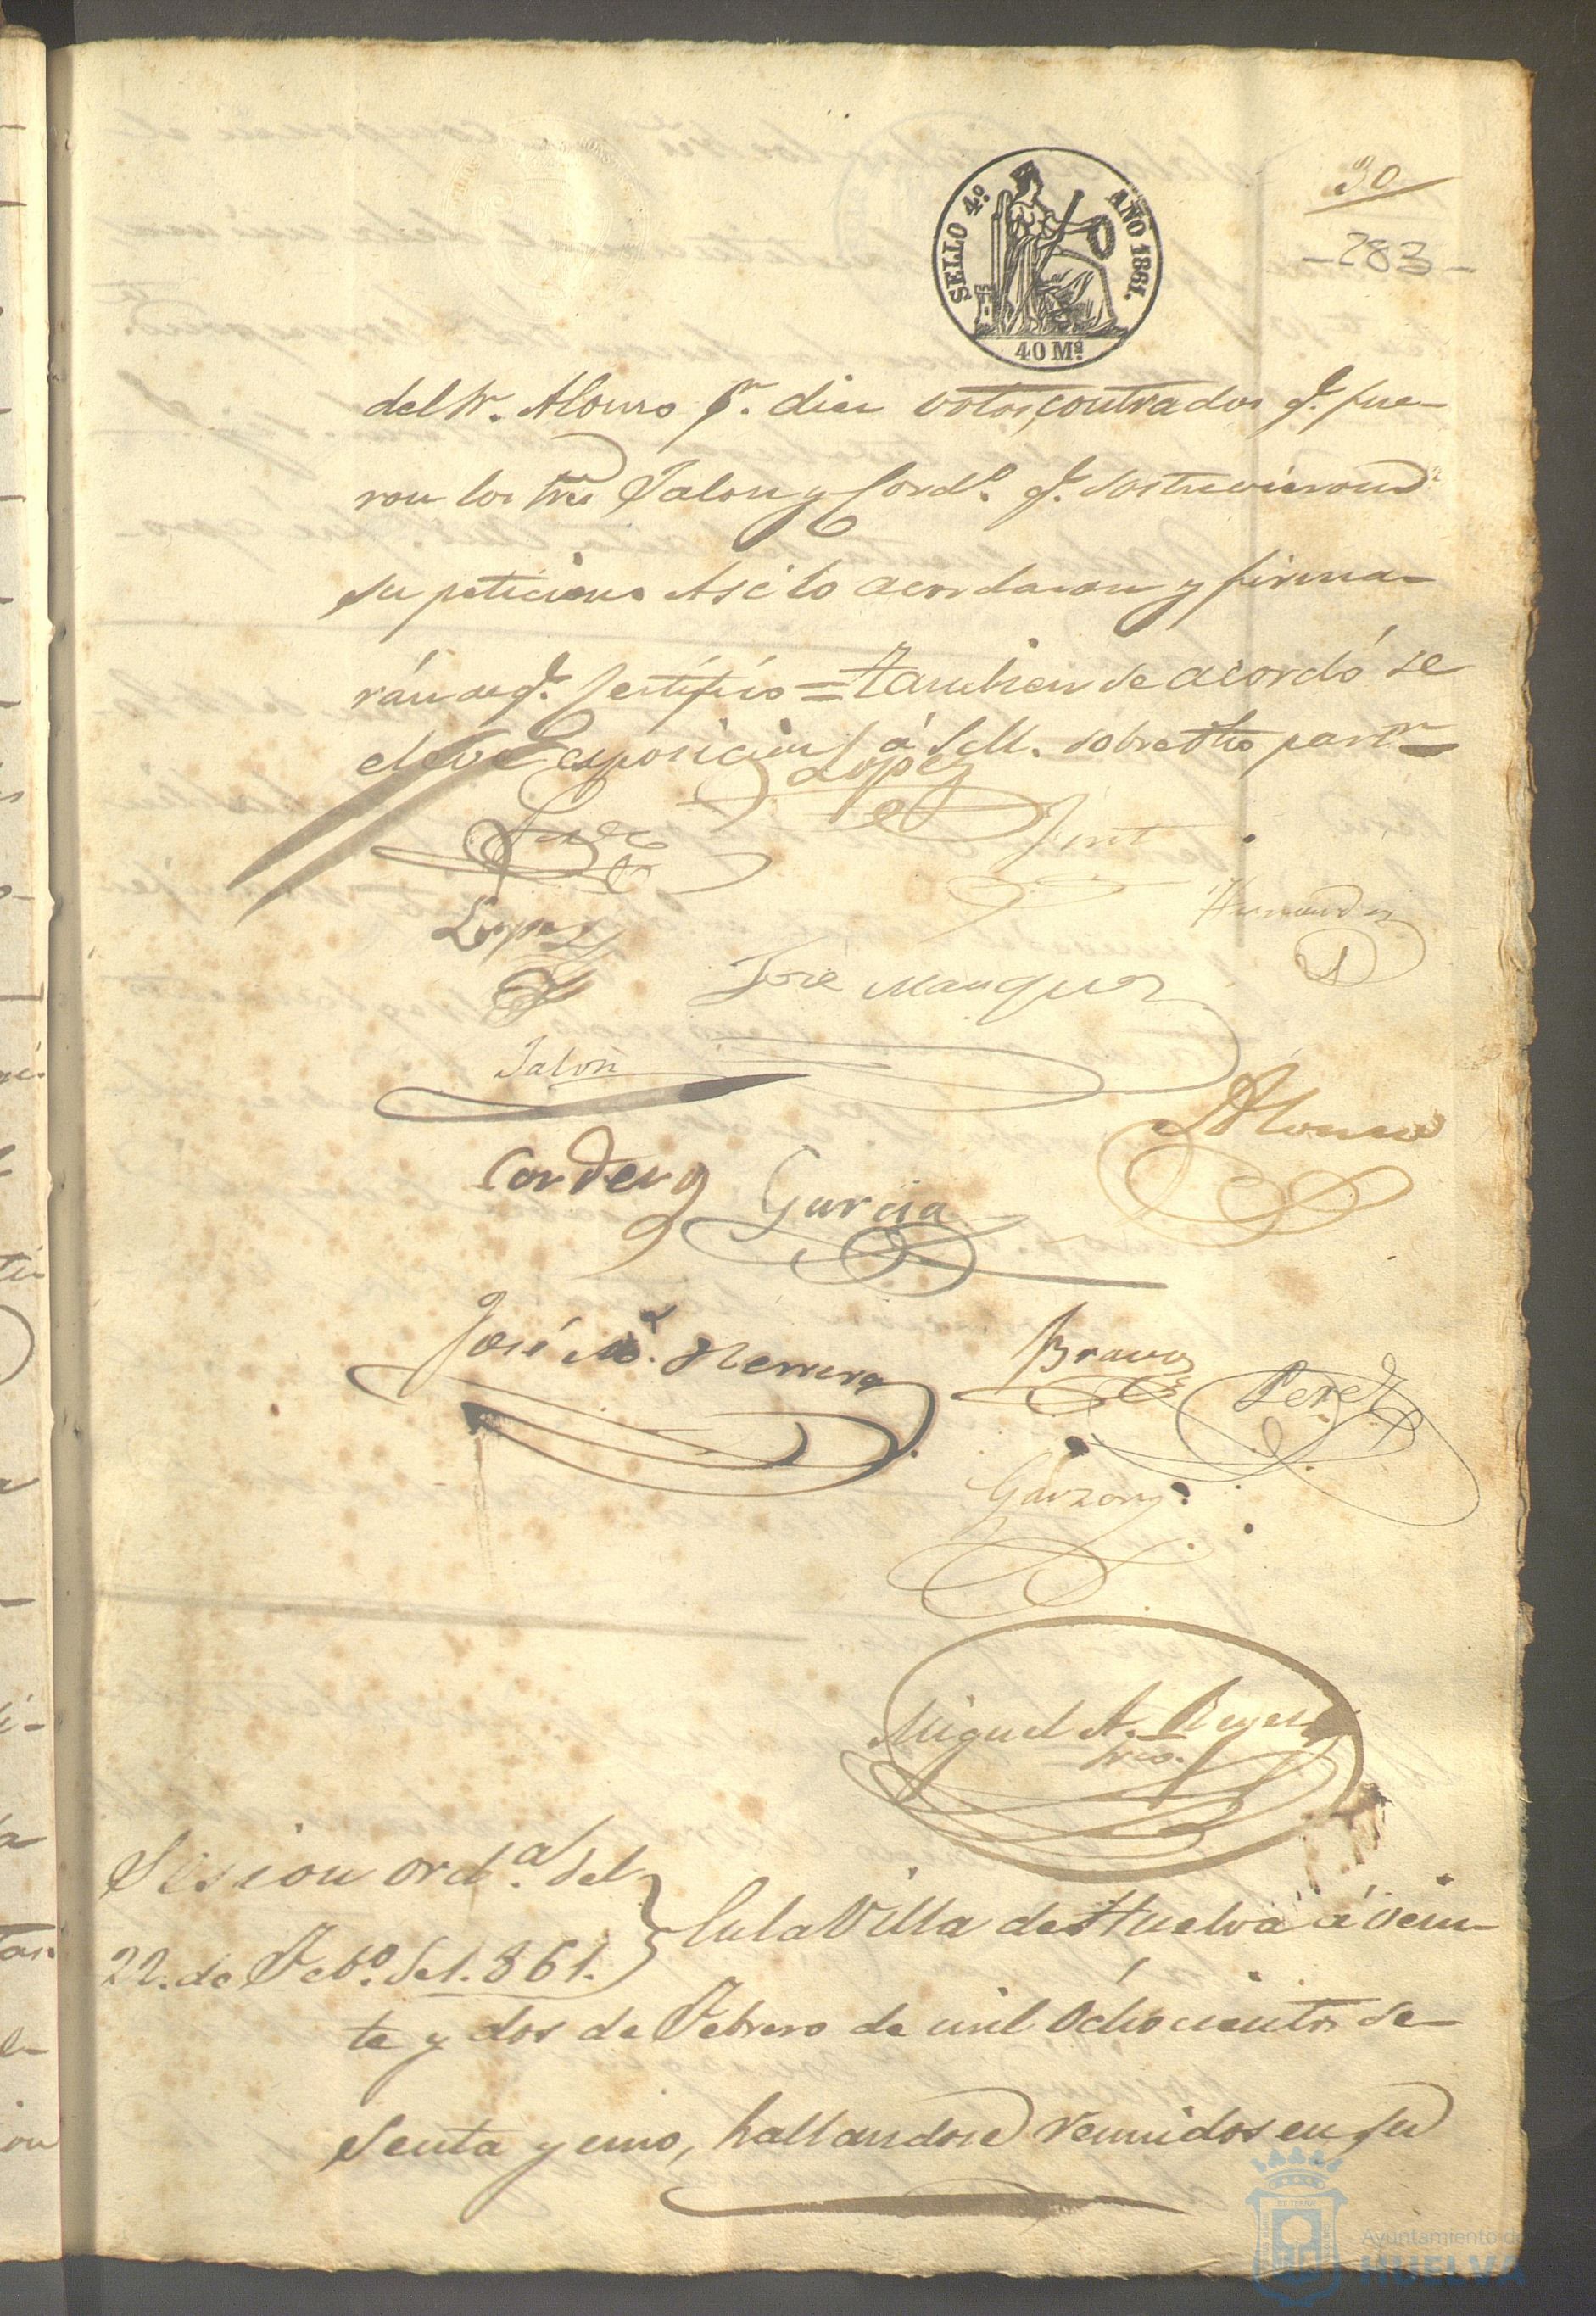 30
-283-
SELLO 4º. AÑO 1861.
40 Ms.
del Sr. Alonso pr. diez votos, contra dos q. fue-
ron los Sres Jalon y Cord.º q. sostuvieron
su peticion. Asi lo acordaron y firma-
rán de q. certifico = tambien se acordó se
eleve esposicion á S. M. sobre otro partr.
Lopez
Lopez
Hernandez
José Marquez
Jalon
Alonso
Cordero
Garcia
José Mª. Herrera
Bravo
Perez
Garzon
Miguel A. Reyes
Srio.
Sesion ord.ª del
22. de Feb.º de 1.861.
En la Villa de Huelva á vein-
te y dos de Febrero de mil ochocientos se-
senta y uno, hallandose reunidos en su
Ayuntamiento de
HUELVA